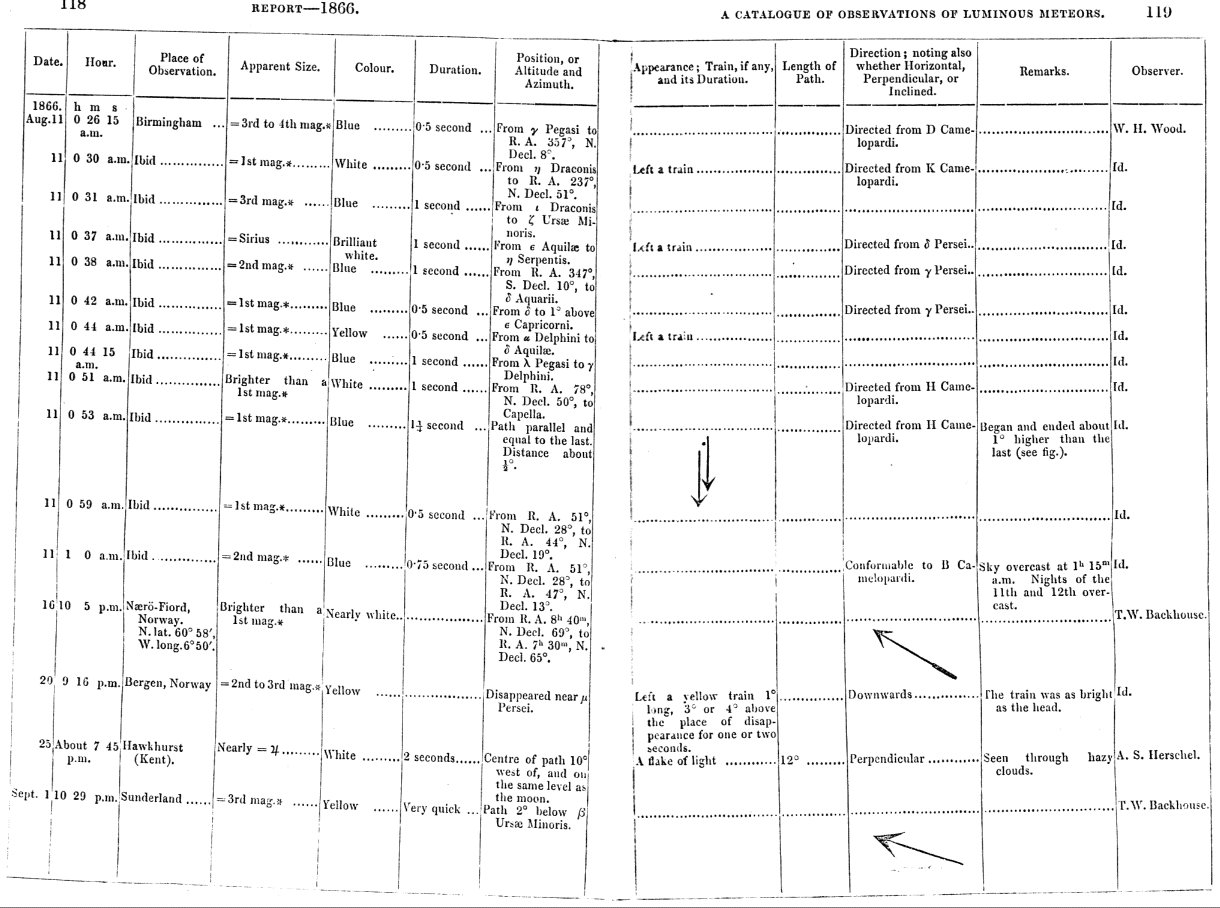 118 REPORT—1866.
Date. Hour. Place of Observation. Apparent Size. Colour. Duration. Position, or Altitude and Azimuth.
1866. h m s
Aug.11 0 26 15 a.m. Birmingham ... =3rd to 4th mag.* Blue ......... 0·5 second ... From γ Pegasi to
R. A. 357°, N.
Decl. 8°.
11 0 30 a.m. Ibid ............. =1st mag.*......... White ........ 0·5 second ... From η Draconis
to R. A. 237°,
N. Decl. 51°.
11 0 31 a.m. Ibid ............. =3rd mag.* ...... Blue ......... 1 second ...... From ι Draconis
to ζ Ursæ Mi-
noris.
11 0 37 a.m. Ibid ............. =Sirius ............ Brilliant white. 1 second ...... From ε Aquilæ to
η Serpentis.
11 0 38 a.m. Ibid ............. =2nd mag.* ...... Blue ......... 1 second ...... From R. A. 347°,
S. Decl. 10°, to
δ Aquarii.
11 0 42 a.m. Ibid ............. =1st mag.*......... Blue ......... 0·5 second ... From δ to 1° above
ε Capricorni.
11 0 44 a.m. Ibid ............. =1st mag.*......... Yellow ...... 0·5 second ... From α Delphini to
δ Aquilæ.
11 0 44 15 a.m. Ibid ............. =1st mag.*......... Blue ......... 1 second ...... From λ Pegasi to γ
Delphini.
11 0 51 a.m. Ibid ............. Brighter than a 1st mag.* White ........ 1 second ...... From R. A. 78°,
N. Decl. 50°, to
Capella.
11 0 53 a.m. Ibid ............. =1st mag.*......... Blue ......... 1¼ second ... Path parallel and
equal to the last.
Distance about
½°.
11 0 59 a.m. Ibid ............. =1st mag.*......... White ........ 0·5 second ... From R. A. 51°,
N. Decl. 28°, to
R. A. 44°, N.
Decl. 19°.
11 1 0 a.m. Ibid ............. =2nd mag.* ...... Blue ......... 0·75 second ... From R. A. 51°,
N. Decl. 28°, to
R. A. 47°, N.
Decl. 13°.
16 10 5 p.m. Nærö-Fiord, Brighter than a Nearly white.. ............... From R. A. 8ʰ 40ᵐ,
Norway. 1st mag.* N. Decl. 69°, to
N. lat. 60° 58′, R. A. 7ʰ 30ᵐ, N.
W. long. 6° 50′. Decl. 65°.
20 9 16 p.m. Bergen, Norway =2nd to 3rd mag.* Yellow ...... ............... Disappeared near μ
Persei.
25 About 7 45 p.m. Hawkhurst (Kent). Nearly = ♃ ......... White ........ 2 seconds...... Centre of path 10°
west of, and on
the same level as
the moon.
Sept. 1 10 29 p.m. Sunderland ...... =3rd mag.* ...... Yellow ...... Very quick ... Path 2° below β
Ursæ Minoris.
A CATALOGUE OF OBSERVATIONS OF LUMINOUS METEORS. 119
Appearance; Train, if any, and its Duration. Length of Path. Direction; noting also whether Horizontal, Perpendicular, or Inclined. Remarks. Observer.
Directed from D Came- W. H. Wood.
lopardi.
Left a train ............... Directed from K Came- Id.
lopardi.
Id.
Left a train ............... Directed from δ Persei.. Id.
Directed from γ Persei.. Id.
Directed from γ Persei.. Id.
Left a train ............... Id.
Id.
Directed from H Came- Id.
lopardi.
Directed from H Came- Began and ended about Id.
lopardi. 1° higher than the
last (see fig.).
Id.
Conformable to B Ca- Sky overcast at 1ʰ 15ᵐ Id.
melopardi. a.m. Nights of the
11th and 12th over-
cast.
T.W. Backhouse.
Left a yellow train 1° Downwards ............ The train was as bright Id.
long, 3° or 4° above as the head.
the place of disap-
pearance for one or two
seconds.
A flake of light ............ 12° ......... Perpendicular ......... Seen through hazy A. S. Herschel.
clouds.
T.W. Backhouse.